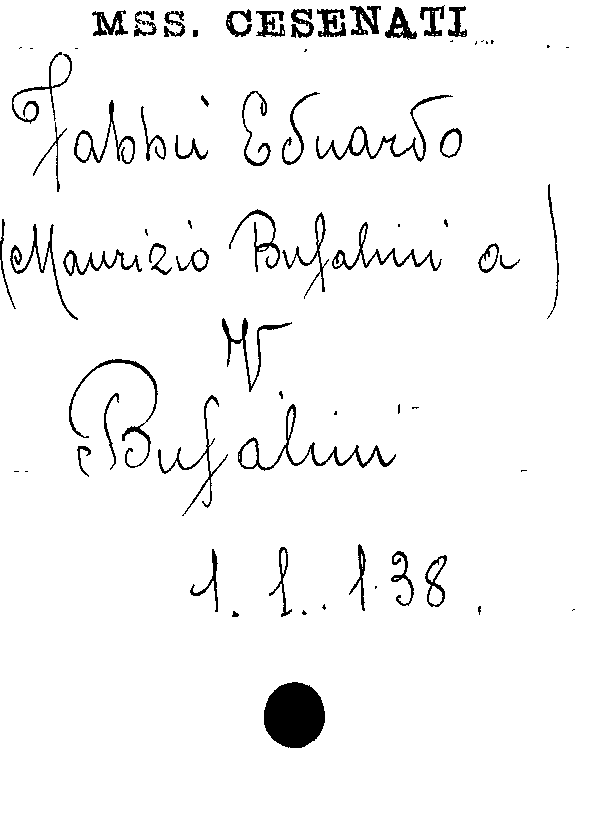 MSS. CESENATI
Fabbri Eduardo
(Maurizio Bufalini a )
V
Bufalini
1. 1. 138.